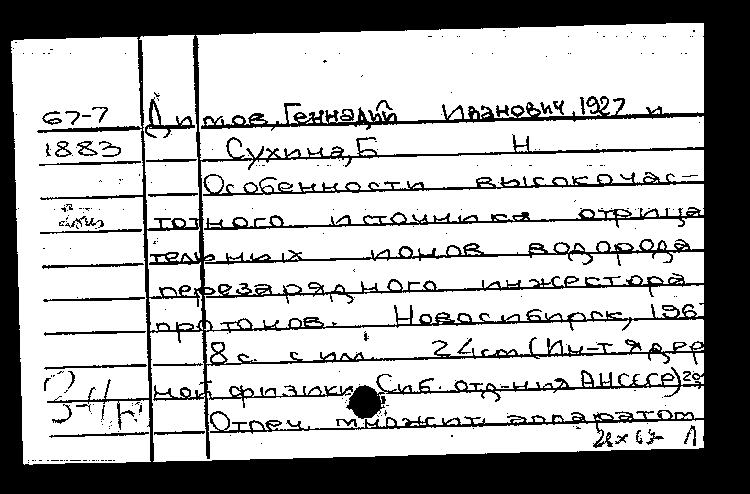 67-7 Димов, Геннадий Иванович, 1927 и
1883 Сухина, Б Н
Особенности высокочас-
тотного источника отрица
тельных ионов водорода
перезарядного инжестора
протонов. Новосибирск, 196
8 с. с илл. 24 cm (Ин-т ядер
ной физики Сиб. отд-ния АН СССР)
Отпеч. множит. аппаратом